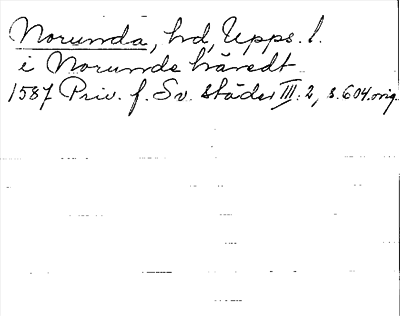 Norunda, hd, Upps. l.
i Norunde häredt
1587 Priv. f. Sv. städer III: 2, s. 604. orig.